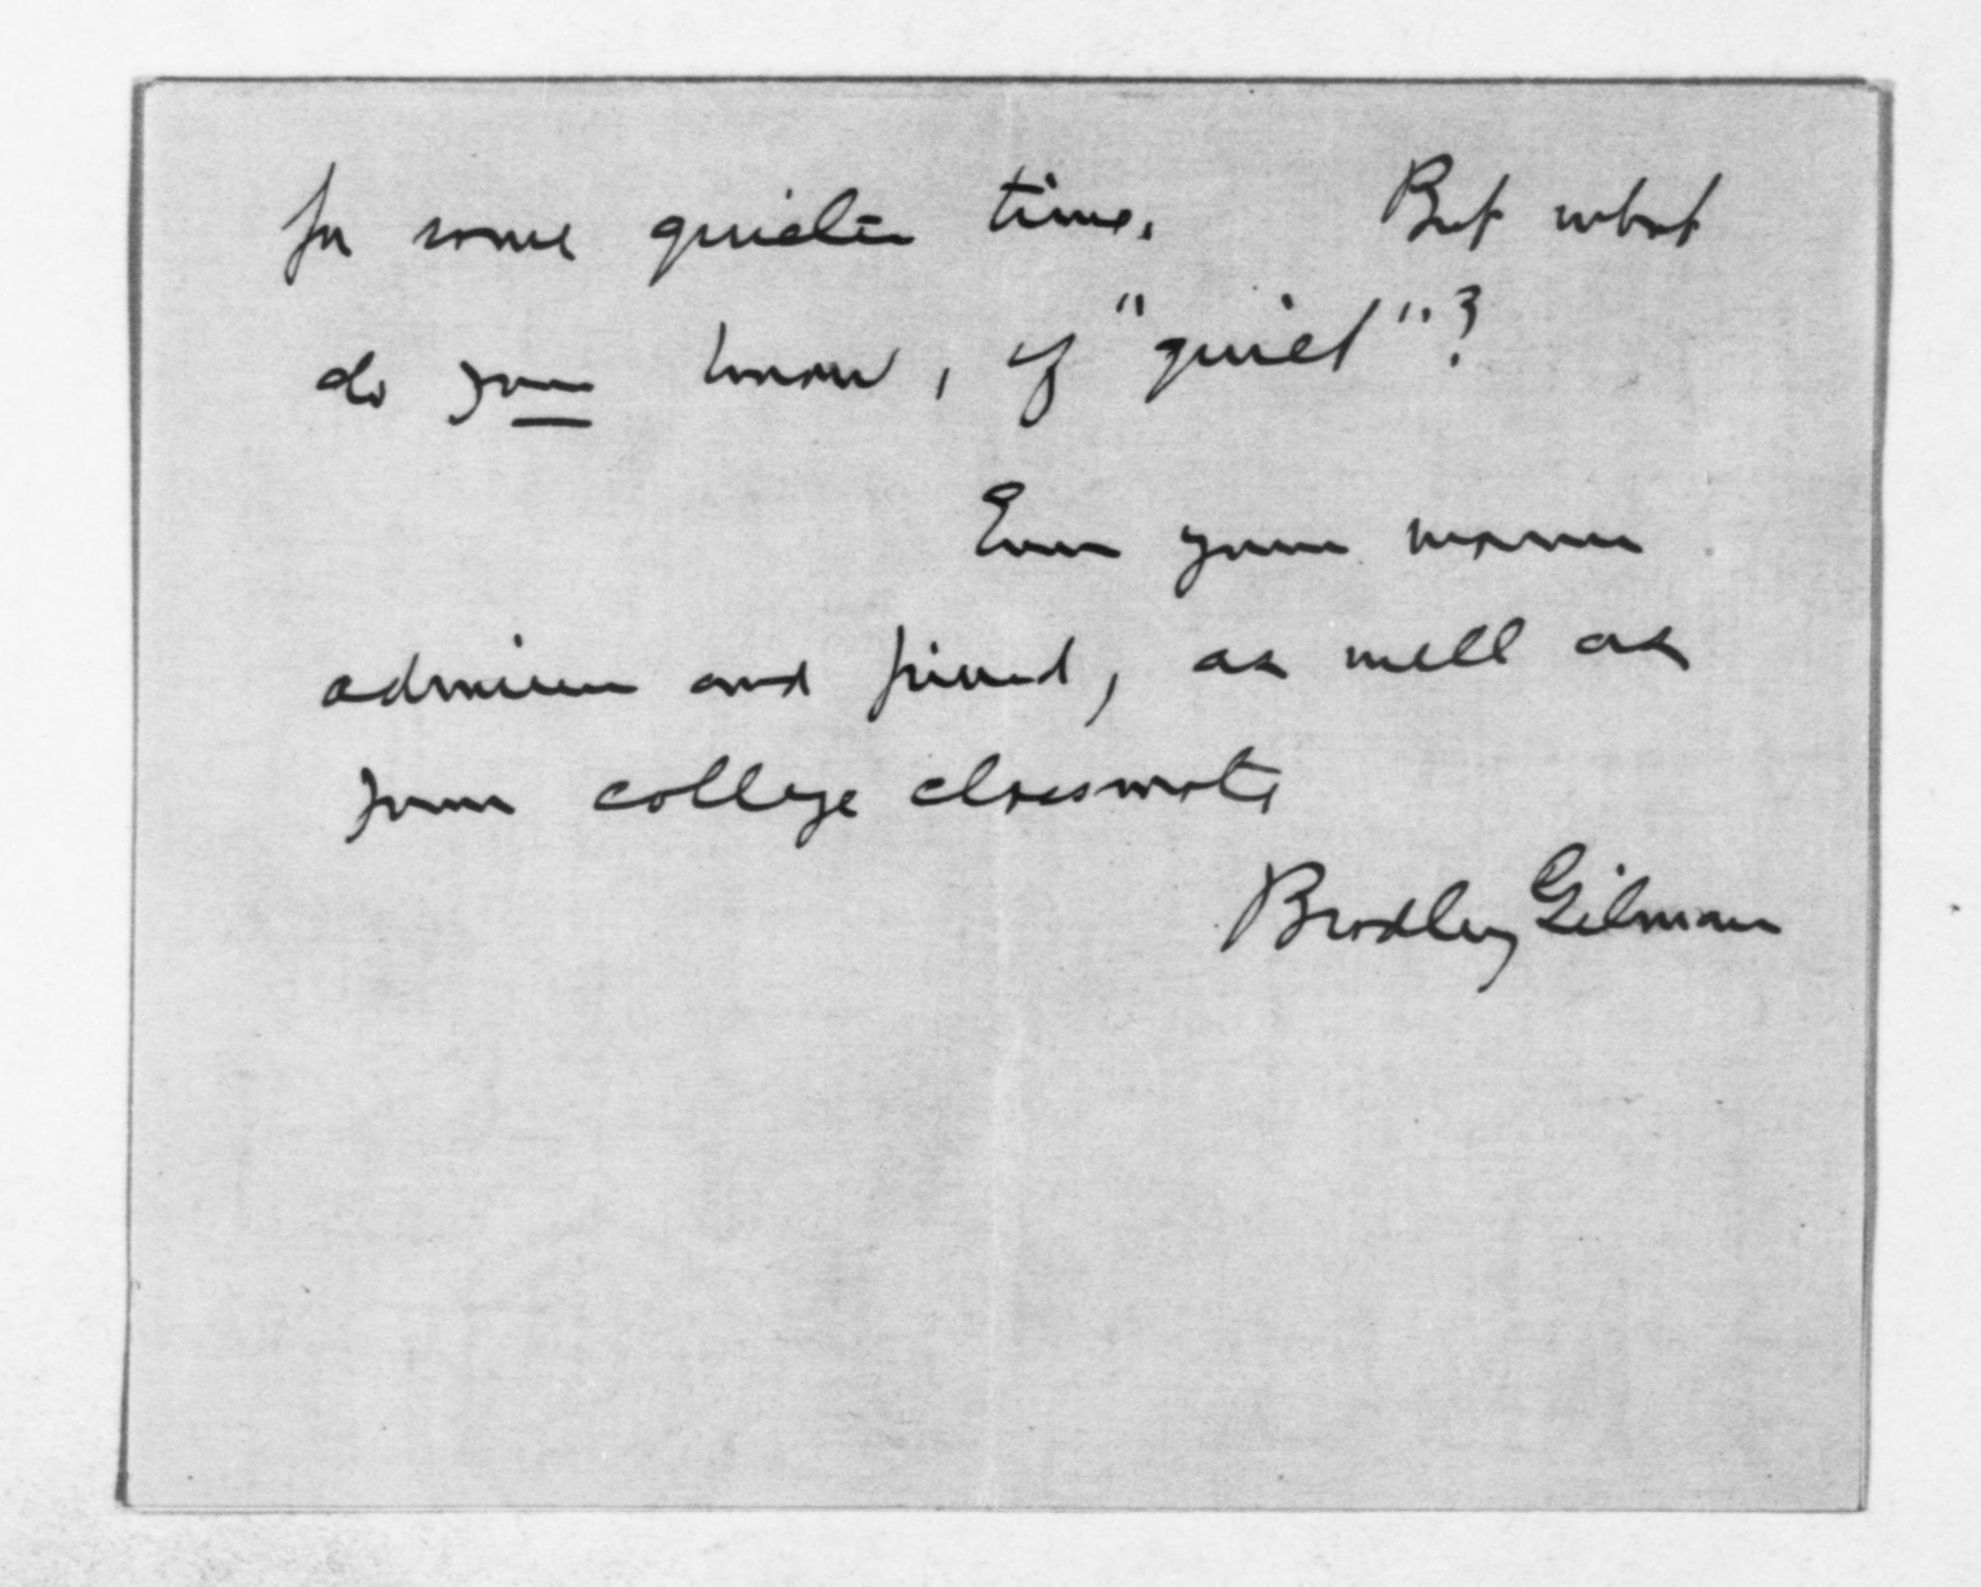 for some quieter time. But what
do you know, of "quiet"?
Ever your warm
admirer and friend, as well as
your college classmate
Bradley Gilman